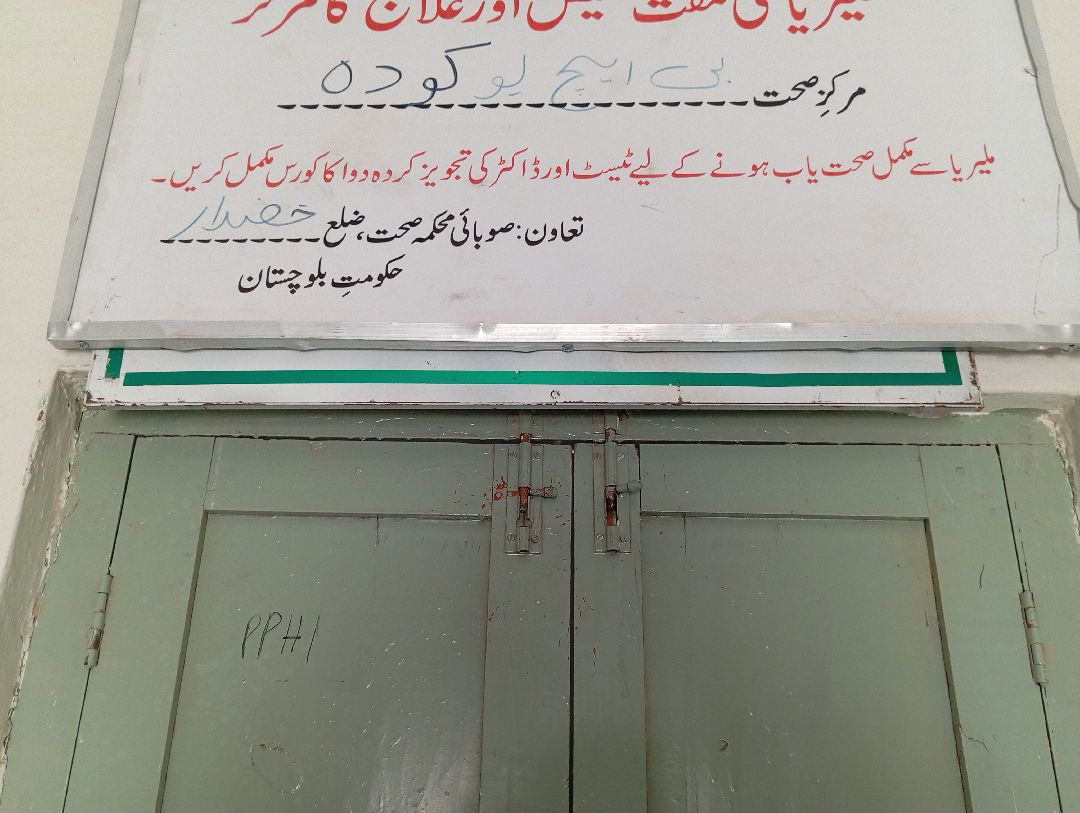 ملیریا کی مفت تشخیص اور علاج کا مرکز
مرکزِ صحت بی ایچ یو کودہ
ملیریا سے مکمل صحت یاب ہونے کے لیے ٹیسٹ اور ڈاکٹر کی تجویز کردہ دوا کا کورس مکمل کریں۔
تعاون: صوبائی محکمہ صحت، ضلع خضدار
حکومتِ بلوچستان
PPHI